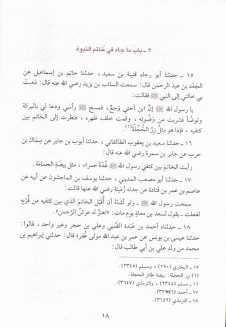 ٢ - باب ما جاء في خاتم النبوة
١٥ - حدثنا أبو رجاء قتيبة بن سعيد، حدثنا حاتم بن إسماعيل عن
الجعد بن عبد الرحمن قال: سمعت السائب بن يزيد رضي الله عنه قال: ذهبت
بي خالتي إلى النبي ﷺ فقالت:
يا رسول الله ﷺ إن ابن أختي وجع، فمسح ﷺ رأسي ودعا لي بالبركة
وتوضأ فشربت من وضوئه، وقمت خلف ظهره، فنظرت إلى الخاتم بين
كتفيه، فإذا هو مثل زر الحجلة
١٦ - حدثنا سعيد بن يعقوب الطالقاني، حدثنا أيوب بن جابر عن سماك بن
حرب عن جابر بن سمرة رضي الله عنه قال:
رأيت الخاتم بين كتفي رسول الله ﷺ غدة حمراء، مثل بيضة الحمامة.
١٧ - حدثنا أبو مصعب المديني، حدثنا يوسف بن الماجشون عن أبيه عن
عاصم بن عمر بن قتادة عن جدته رميثة رضي الله عنها قالت:
سمعت رسول الله ﷺ - ولو أشاء أن أقبل الخاتم الذي بين كتفيه من قربه
لفعلت - يقول لسعد بن معاذ يوم مات: «اهتز له عرش الرحمن».
١٨ - حدثنا أحمد بن عبدة الضبي وعلي بن حجر وغير واحد، قالوا:
حدثنا عيسى بن يونس عن عمر بن عبد الله مولى غفرة قال: حدثني إبراهيم بن
محمد من ولد علي بن أبي طالب قال:
١٥ - البخاري (١٩٠)، ومسلم (٢٣٤٥).
(١) زر الحجلة: بيضة طائر الحجلة.
١٦ - مسلم (٢٣٤٤)، والترمذي (٣٦٤٧).
١٧ - أحمد
١٨ - الترمذي
١٨